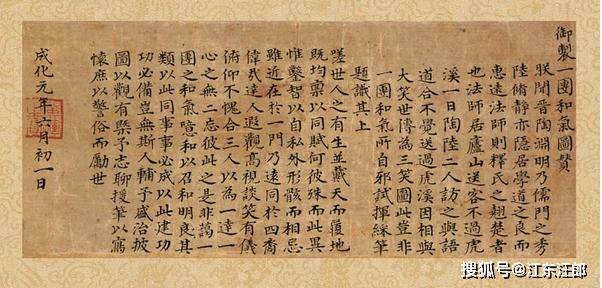 御製一團和氣圖贊
朕聞晉陶淵明乃儒門之秀
陸脩靜亦隱居學道之良而
惠遠法師則釋氏之翹楚者
也法師居廬山送客不過虎
溪一日陶陸二人訪之與語
道合不覺送過虎溪因相與
大笑世傳為三笑圖此豈非
一團和氣所自邪試揮綵筆
題識其上
嗟世人之有生並戴天而履地
既均稟以同賦何彼殊而此異
惟鑿智以自私外形骸而相忌
雖近在於一門乃遠同於四裔
偉哉達人遐觀高視談笑有儀
俯仰不愧合三人以為一達一
心之無二忘彼此之是非藹一
團之和氣噫和以召和明良其
類以此同事事必成以此建功
功必備豈無斯人輔予盛治披
圖以觀有槩予志聊援筆以寫
懷庶以警俗而勵世
成化元年六月初一日
搜狐号@江东汪郎